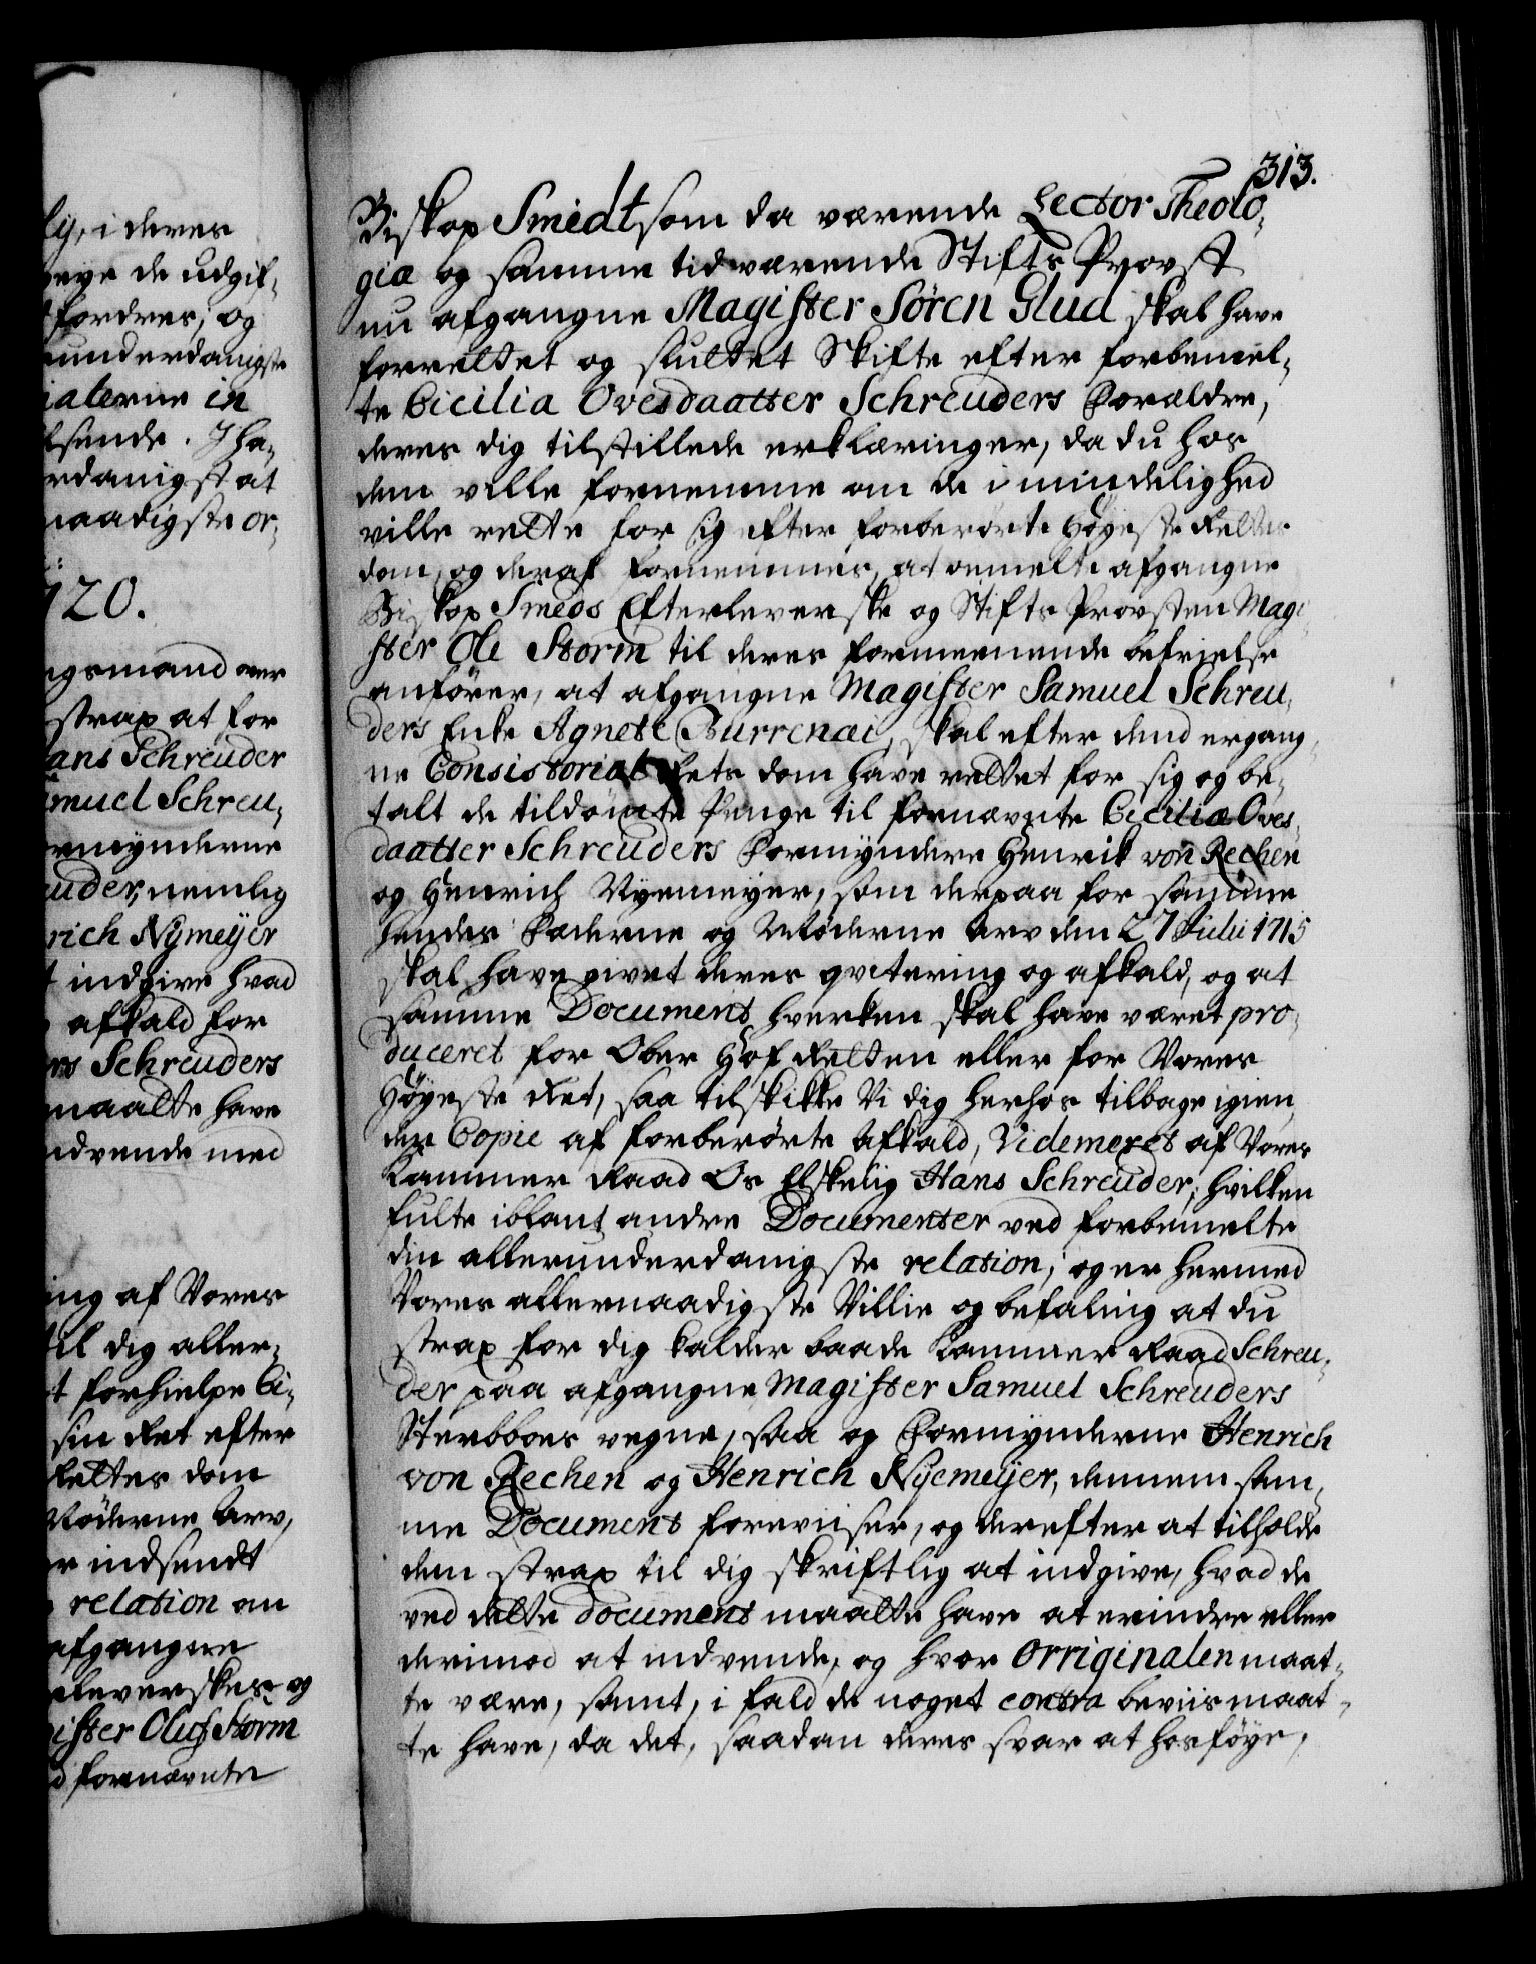 ly, i deres
neye de udgif-
fordres, og
underdanigste
iaterne in
lsende. J ha-
rdanigst at
naadigste or-
120.
ngsmand over
strax at for
ans Schreuder
muel Schreu-
ormynderne
uder, nemlig
rich Nymeÿer
indgive hvad
afkald for
rs Schreuders
maatte have
indvende med
ing af Vores
til dig aller-
t forhielpe Ci-
sin Ret efter
Rettes dom
Møderne Arv,
r indsendt
relation om
afgangne
leverskes og
ister Oluf Storm
d fornævnte
313.
Biskop Smedt som da værende Lector Theolo-
giæ og samme tid værende Stifts Provst
nu afgangne Magister Sören Glud skal have
forrettet og sluttet Skifte efter forbemel-
te Cicilia Ovesdaatter Schreuders Forældre,
deres dig tilstillede erklæringer, da du hos
dem ville fornemme om de i mindelighed
ville rette for sig efter forberørte Høyeste Rettes
dom, og deraf fornemmes, at bemelte afgangne
Biskop Smeds Efterleverske og Stifts Provsten Magi-
ster Ole Storm til deres formeenende befrielse
anfører, at afgangne Magister Samuel Schreu-
ders Enke Agnete Burrenæi, skal efter dend ergang-
ne Consistorial Rets dom have rettet for sig og be-
talt de tildømte Penge til fornævnte Ciciliæ Oves-
daatter Schreuders Formyndere Henrik von Rechen
og Henrich Nyemeyer, som derpaa for samme
hendes Fæderne og Møderne Arv den 27 Julii 1715
skal have givet deres qvitering og afkald, og at
samme Document hverken skal have været pro-
duceret for Ober Hof Retten eller for Vores
Høyeste Ret, saa tilskikke Vi dig herhos tilbage igien
den Copie af forberørte Afkald, Videmeret af Vores
Kammer Raad Os Elskelig Hans Schreuder, hvilken
fulte iblant andre Documenter ved forbemelte
din allerunderdanigste relation, og er hermed
Vores allernaadigste Villie og befaling at du
strax for dig kalder baade Kammer Raad Schreu-
der paa afgangne Magister Samuel Schreuders
Sterbboes vegne, saa og Formynderne Henrich
von Rechen og Henrich Nyemeÿer, dennem sam-
me Document foreviiser, og derefter at tilholde
dem strax til dig skriftlig at indgive, hvad de
ved dette document maatte have at erindre eller
derimod at indvende, og hvor Orriginalen maat-
te være, samt, i fald de noget contra beviis maat-
te have, da det, saadan deres svar at hosføye,